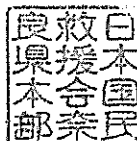 日本国民
救援会奈
良県本部